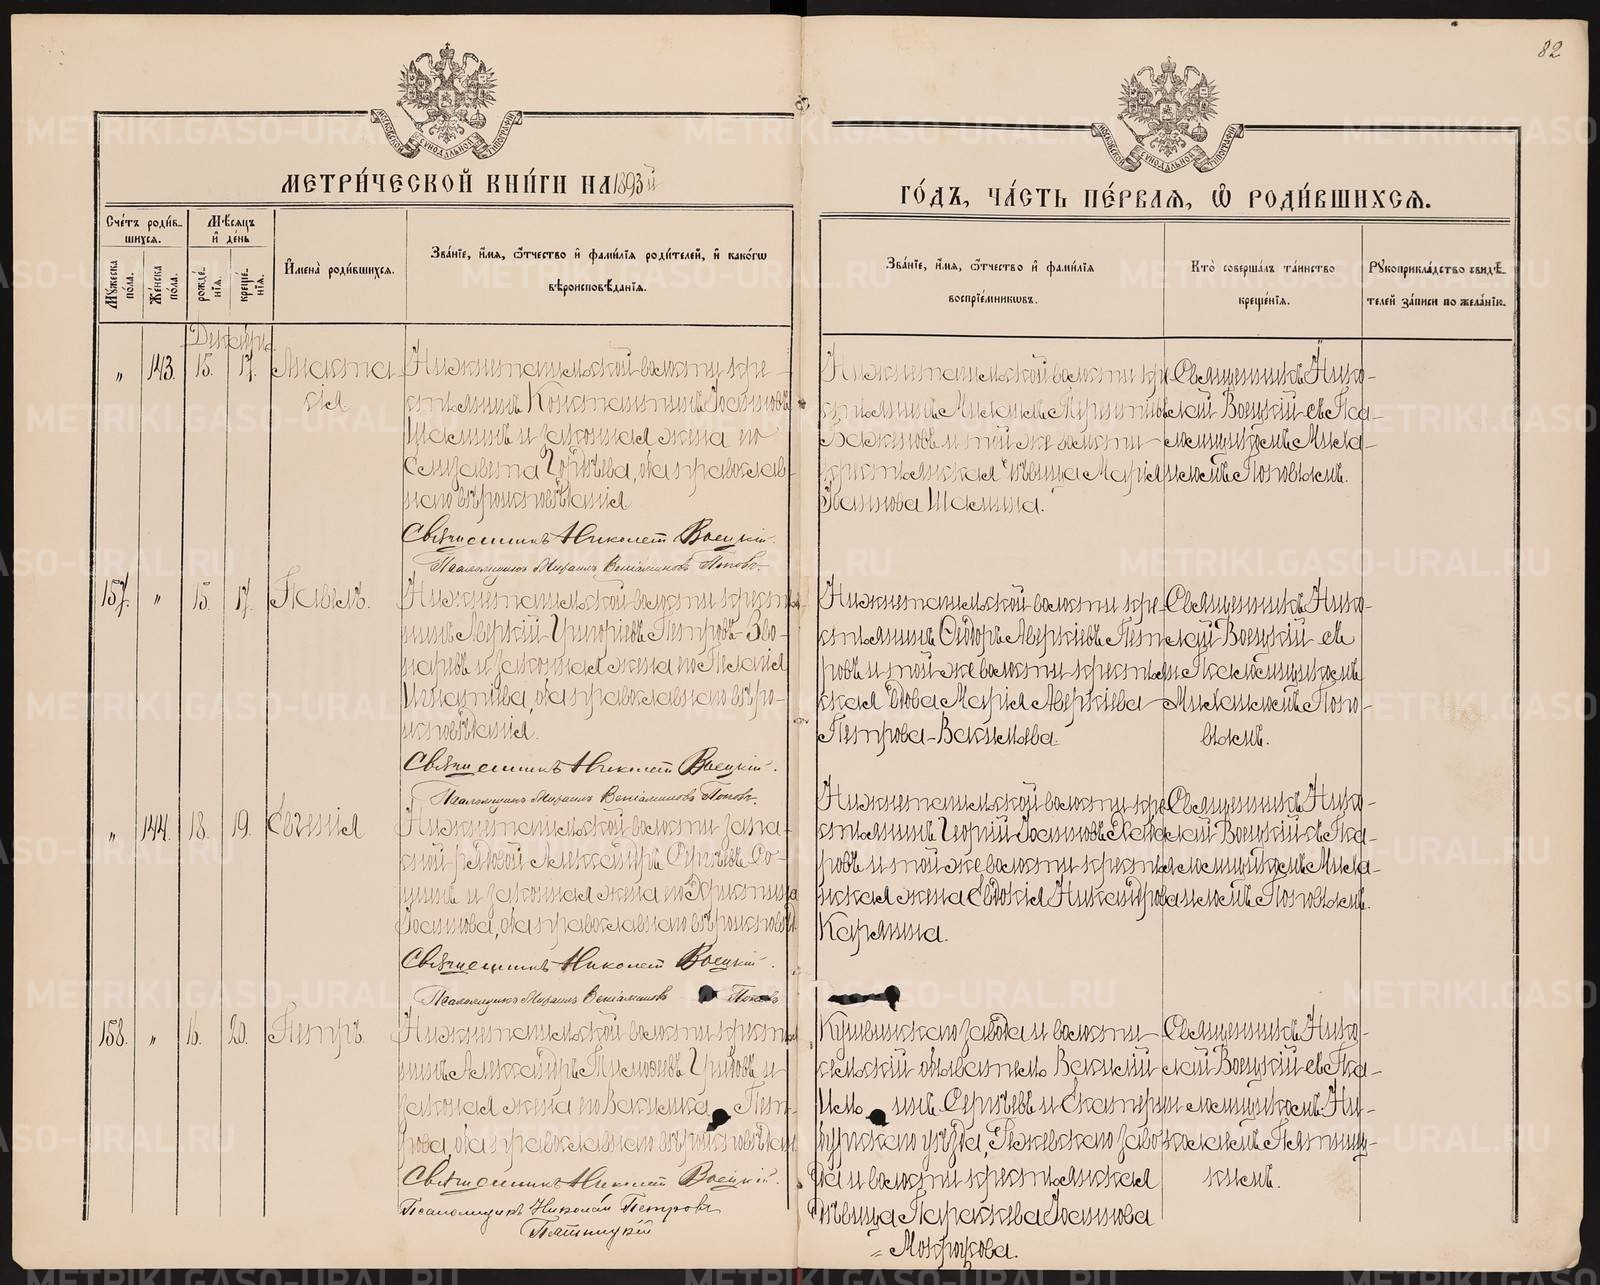 82
МЕТРИ́ЧЕСКОЙ КНИ́ГИ НА 1893й
ГО́ДЪ, ЧА́СТЬ ПЕ́РВАЯ, Ѽ РОДИ́ВШИХСЯ.
Сче́тъ роди́в-
шихся.
Му́жеска по́ла.
Же́нска по́ла.
Мѣ́сяцъ
и҆ де́нь
рожде́нїя.
креще́нїя.
И҆мена̀ роди́вшихся.
Зва́нїе, и҆́мя, ѻ҆́тчество и҆ фами́лїя роди́телей, и҆ како́гѡ
вѣроисповѣ́данїя.
Зва́нїе, и҆́мя, ѻ҆́тчество и҆ фами́лїя
воспрїе́мникѡвъ.
Кто̀ соверша́лъ та́инство
креще́нїя.
Рꙋкоприкла́дство свидѣ́-
телей за́писи по жела́нїю.
Декабрь.
„ 143. 15. 17. Анаста-
сія
Нижнетагильской волости кре-
стьянинъ Константинъ Іоанновъ
Шалинъ и законная жена его
Елизавета Гордѣева, оба православ-
наго вѣроисповѣданія
Священникъ Николай Воецкій.
Псаломщикъ Михаилъ Веніаминовъ Поповъ.
Нижнетагильской волости кре-
стьянинъ Михаилъ
Бажиновъ и той же волости
крестьянская дѣвица Марія
Іоаннова Шалина.
Священникъ Нико-
лай Воецкій съ Пса-
ломщикомъ Миха-
иломъ Поповымъ.
157. „ 15. 17. Павелъ.
Нижнетагильской волости крестья-
нинъ Аверкій Григоріевъ Петровъ-Зво-
наревъ и законная жена его Пелагія
Игнатіева, оба православнаго вѣро-
исповѣданія.
Священникъ Николай Воецкій.
Псаломщикъ Михаилъ Веніаминовъ Поповъ.
Нижнетагильской волости кре-
стьянинъ Ѳедоръ Аверкіевъ Пет-
ровъ и той же волости крестьян-
ская вдова Марія Аверкіева
Петрова-Васильева.
Священникъ Нико-
лай Воецкій съ
Псаломщикомъ
Михаиломъ Попо-
вымъ.
„ 144. 18. 19. Евгенія
Нижнетагильской волости запа-
сной рядовой Александръ Сергѣевъ
и законная жена его Христина
Іоаннова, оба православнаго вѣроисповѣд.
Священникъ Николай Воецкій.
Псаломщикъ Михаилъ Веніаминовъ Поповъ
Нижнетагильской волости кре-
стьянинъ Георгій Іоанновъ
ровъ и той же волости крестьян-
ская жена Евдокія Никандрова
Карякина.
Священникъ Нико-
лай Воецкій съ Пса-
ломщикомъ Миха-
иломъ Поповымъ.
158. „ 16. 20. Петръ.
Нижнетагильской волости крестья-
нинъ Александръ Тимофеевъ Грибовъ и
законая жена его Василиса Пет-
рова, оба православнаго вѣроисповѣдан.
Священникъ Николай Воецкій.
Псаломщикъ Николай Петровъ
Пятницкій
Кушвинскаго завода и волости
сельскій обыватель Василій
Сергѣевъ и Екатерин-
бургскаго уѣзда, Режевскаго заво-
да и волости крестьянская
дѣвица Параскева Іоаннова
= Мокроусова.
Священникъ Нико-
лай Воецкій съ Пса-
ломщикомъ Ни-
колаемъ Пятниц-
кимъ.
METRIKI.GASO-URAL.RU